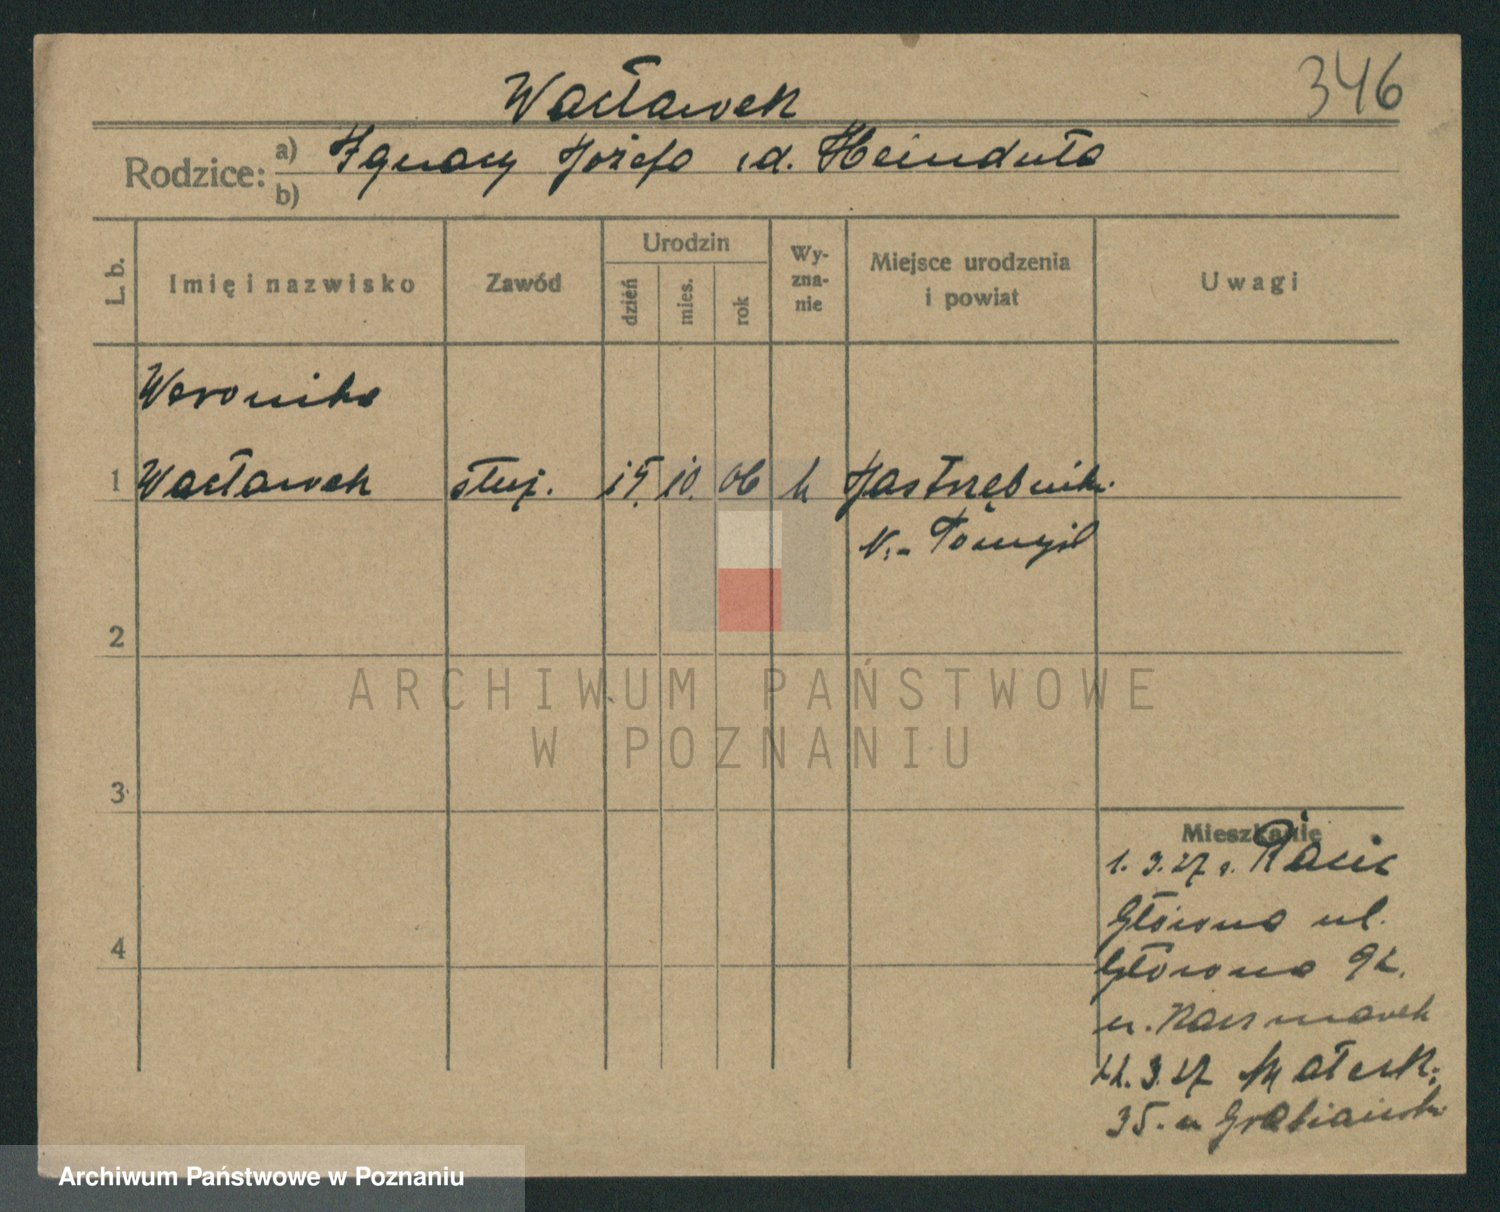 346
Wacławek
Rodzice:
a) Ignacy Józefa d. Heinduła
b)
L. b.
Imię i nazwisko
Zawód
Urodzin
dzień
mies.
rok
Wy-
zna-
nie
Miejsce urodzenia
i powiat
Uwagi
Weronika
1 Wacławek służ. 15. 10. 06 k Jastrzębnik.
N.-Tomyśl
2
3
4
Mieszkanie
1. 3. 27
Główna ul.
Główna 92.
u. Kaczmarek
22. 3. 27 Małeck.
35. u Grabiańsk.
ARCHIWUM PAŃSTWOWE
W POZNANIU
Archiwum Państwowe w Poznaniu